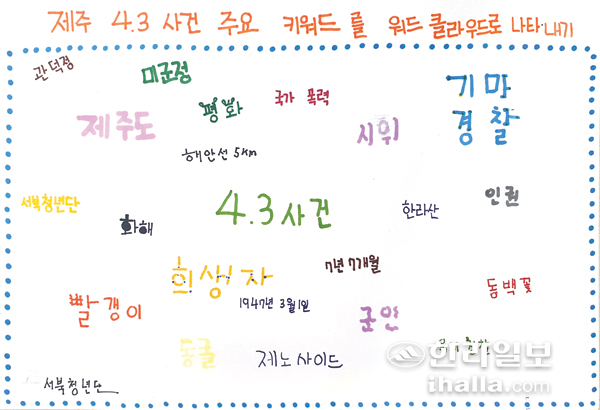 제주 4.3 사건 주요 키워드를 워드 클라우드로 나타내기
관덕정
미군정
평화
국가 폭력
기마
경찰
제주도
시위
해안선 5km
서북청년단
화해
4.3사건
한라산
인권
희생자
7년 7개월
동백꽃
빨갱이
1947년 3월1일
군인
동굴
제노사이드
서북청년단
한라일보
ihalla.com